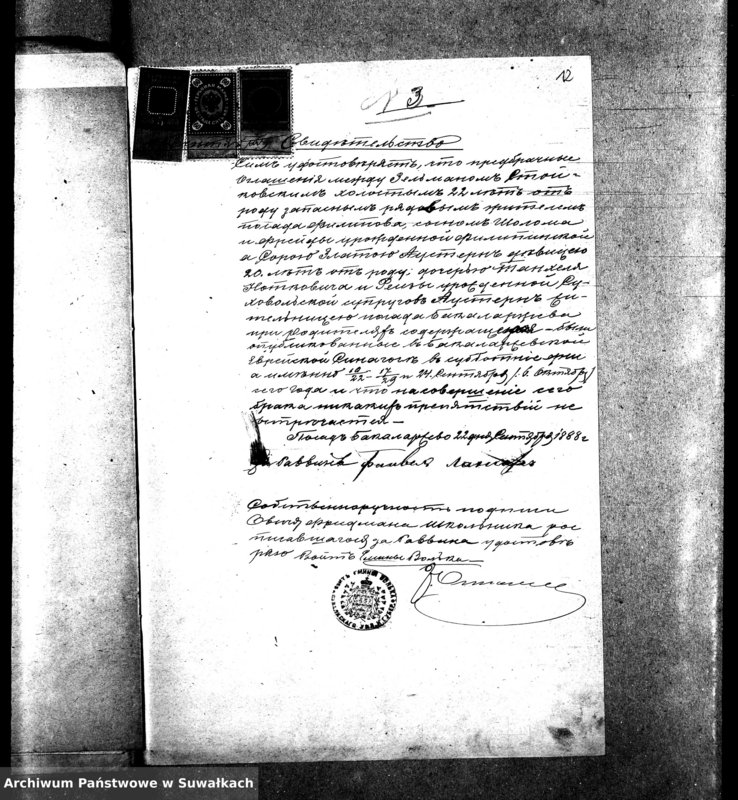 12
N 3
Свидѣтельство
Симъ удостовѣряетъ, что предбрачные
оглашенія между Зельманомъ Стой-
ковскимъ холостымъ 22 лѣтъ отъ
роду запаснымъ рядовымъ жителемъ
посада Филипова, сыномъ Шолома
и Фрейды урожденной Филипинской
а Сорою Златою Аустернъ дѣвицею
20 лѣтъ отъ роду, дочерью Танхеля
Нотковича и урожденной Су-
ховольской супруговъ Аустернъ жи-
тельницею посада Бакаларжева
при родителяхъ – были
опубликованное въ Бакаларжевской
Еврейской Синагогѣ въ субботніе дни
а именно 10/22 – 17/29 и 24 Сентября /6 Октября/
сего года и что на совершеніе сего
брака никакихъ препятствій не
встрѣчается –
Посадъ Бакаларжево 22 дня Сентября 1888 г
За Раввина
Собственноручность подписи
Фридмана школьника рос
писавшагося за Раввина удостовѣ
ряю Войтъ Гмины Волька
Archiwum Państwowe w Suwałkach